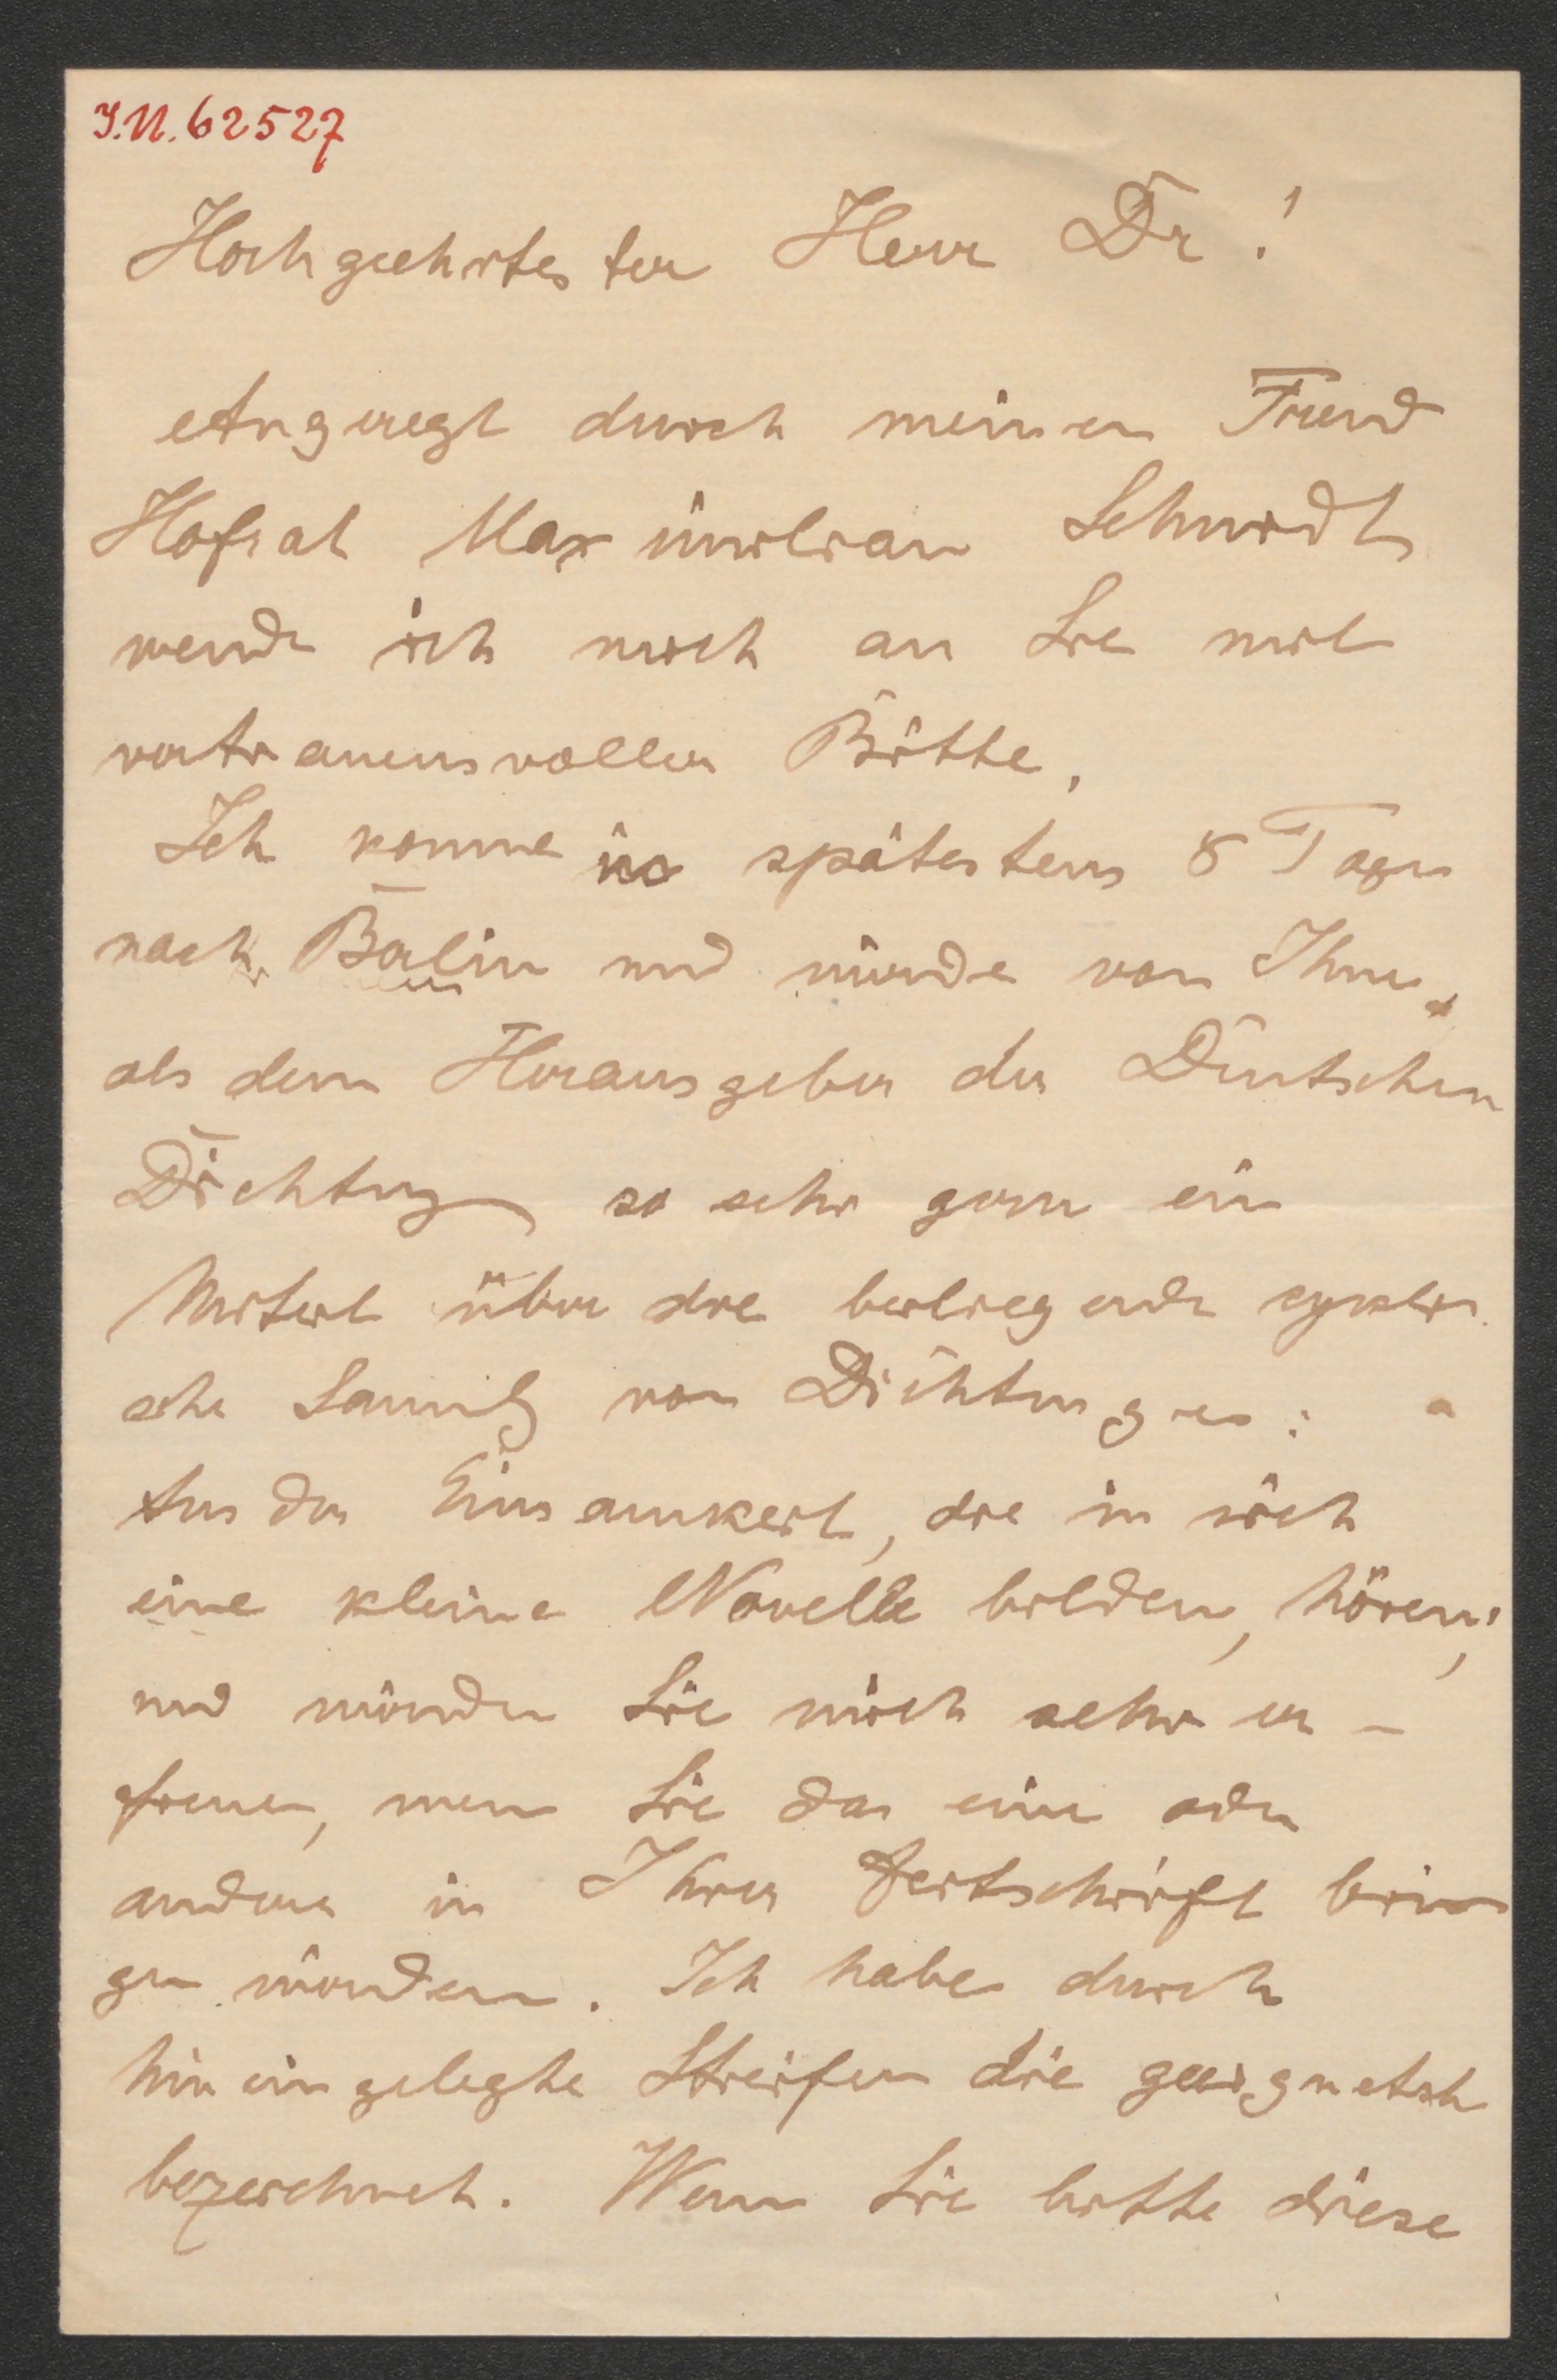 J.N. 62527
Hochgeehrtester Herr Dr!
Angeregt durch meinen Freund
Hofrat Maximilian Schmidt
wende ich mich an Sie mit
vertrauensvoller Bitte.
Ich komme in spätestens 8 Tagen
nach Berlin und würde von Ihnen,
als dem Herausgeber der Deutschen
Dichtung so sehr gern ein
Urteil über die beiliegende cykli-
sche Sammlg von Dichtungen:
Aus der Einsamkeit, die in sich
eine kleine Novelle bilden, hören,
und würden Sie mich sehr er-
freuen, wenn Sie das eine oder
andere in Ihrer Zeitschrift brin
gen würden. Ich habe durch
hineingelegte Streifen die geeignetsten
bezeichnet. Wenn Sie bitte diese